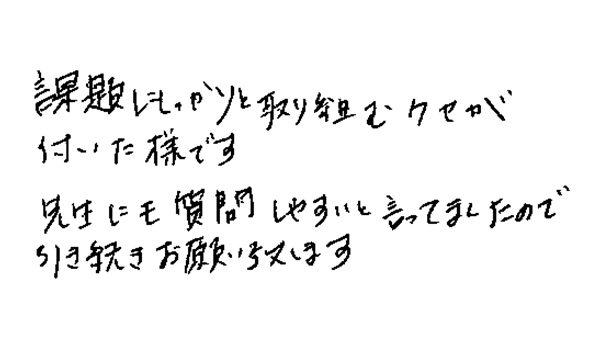 課題にしっかりと取り組むクセが
付いた様です
先生にも質問しやすいと言ってましたので
引き続きお願い致します